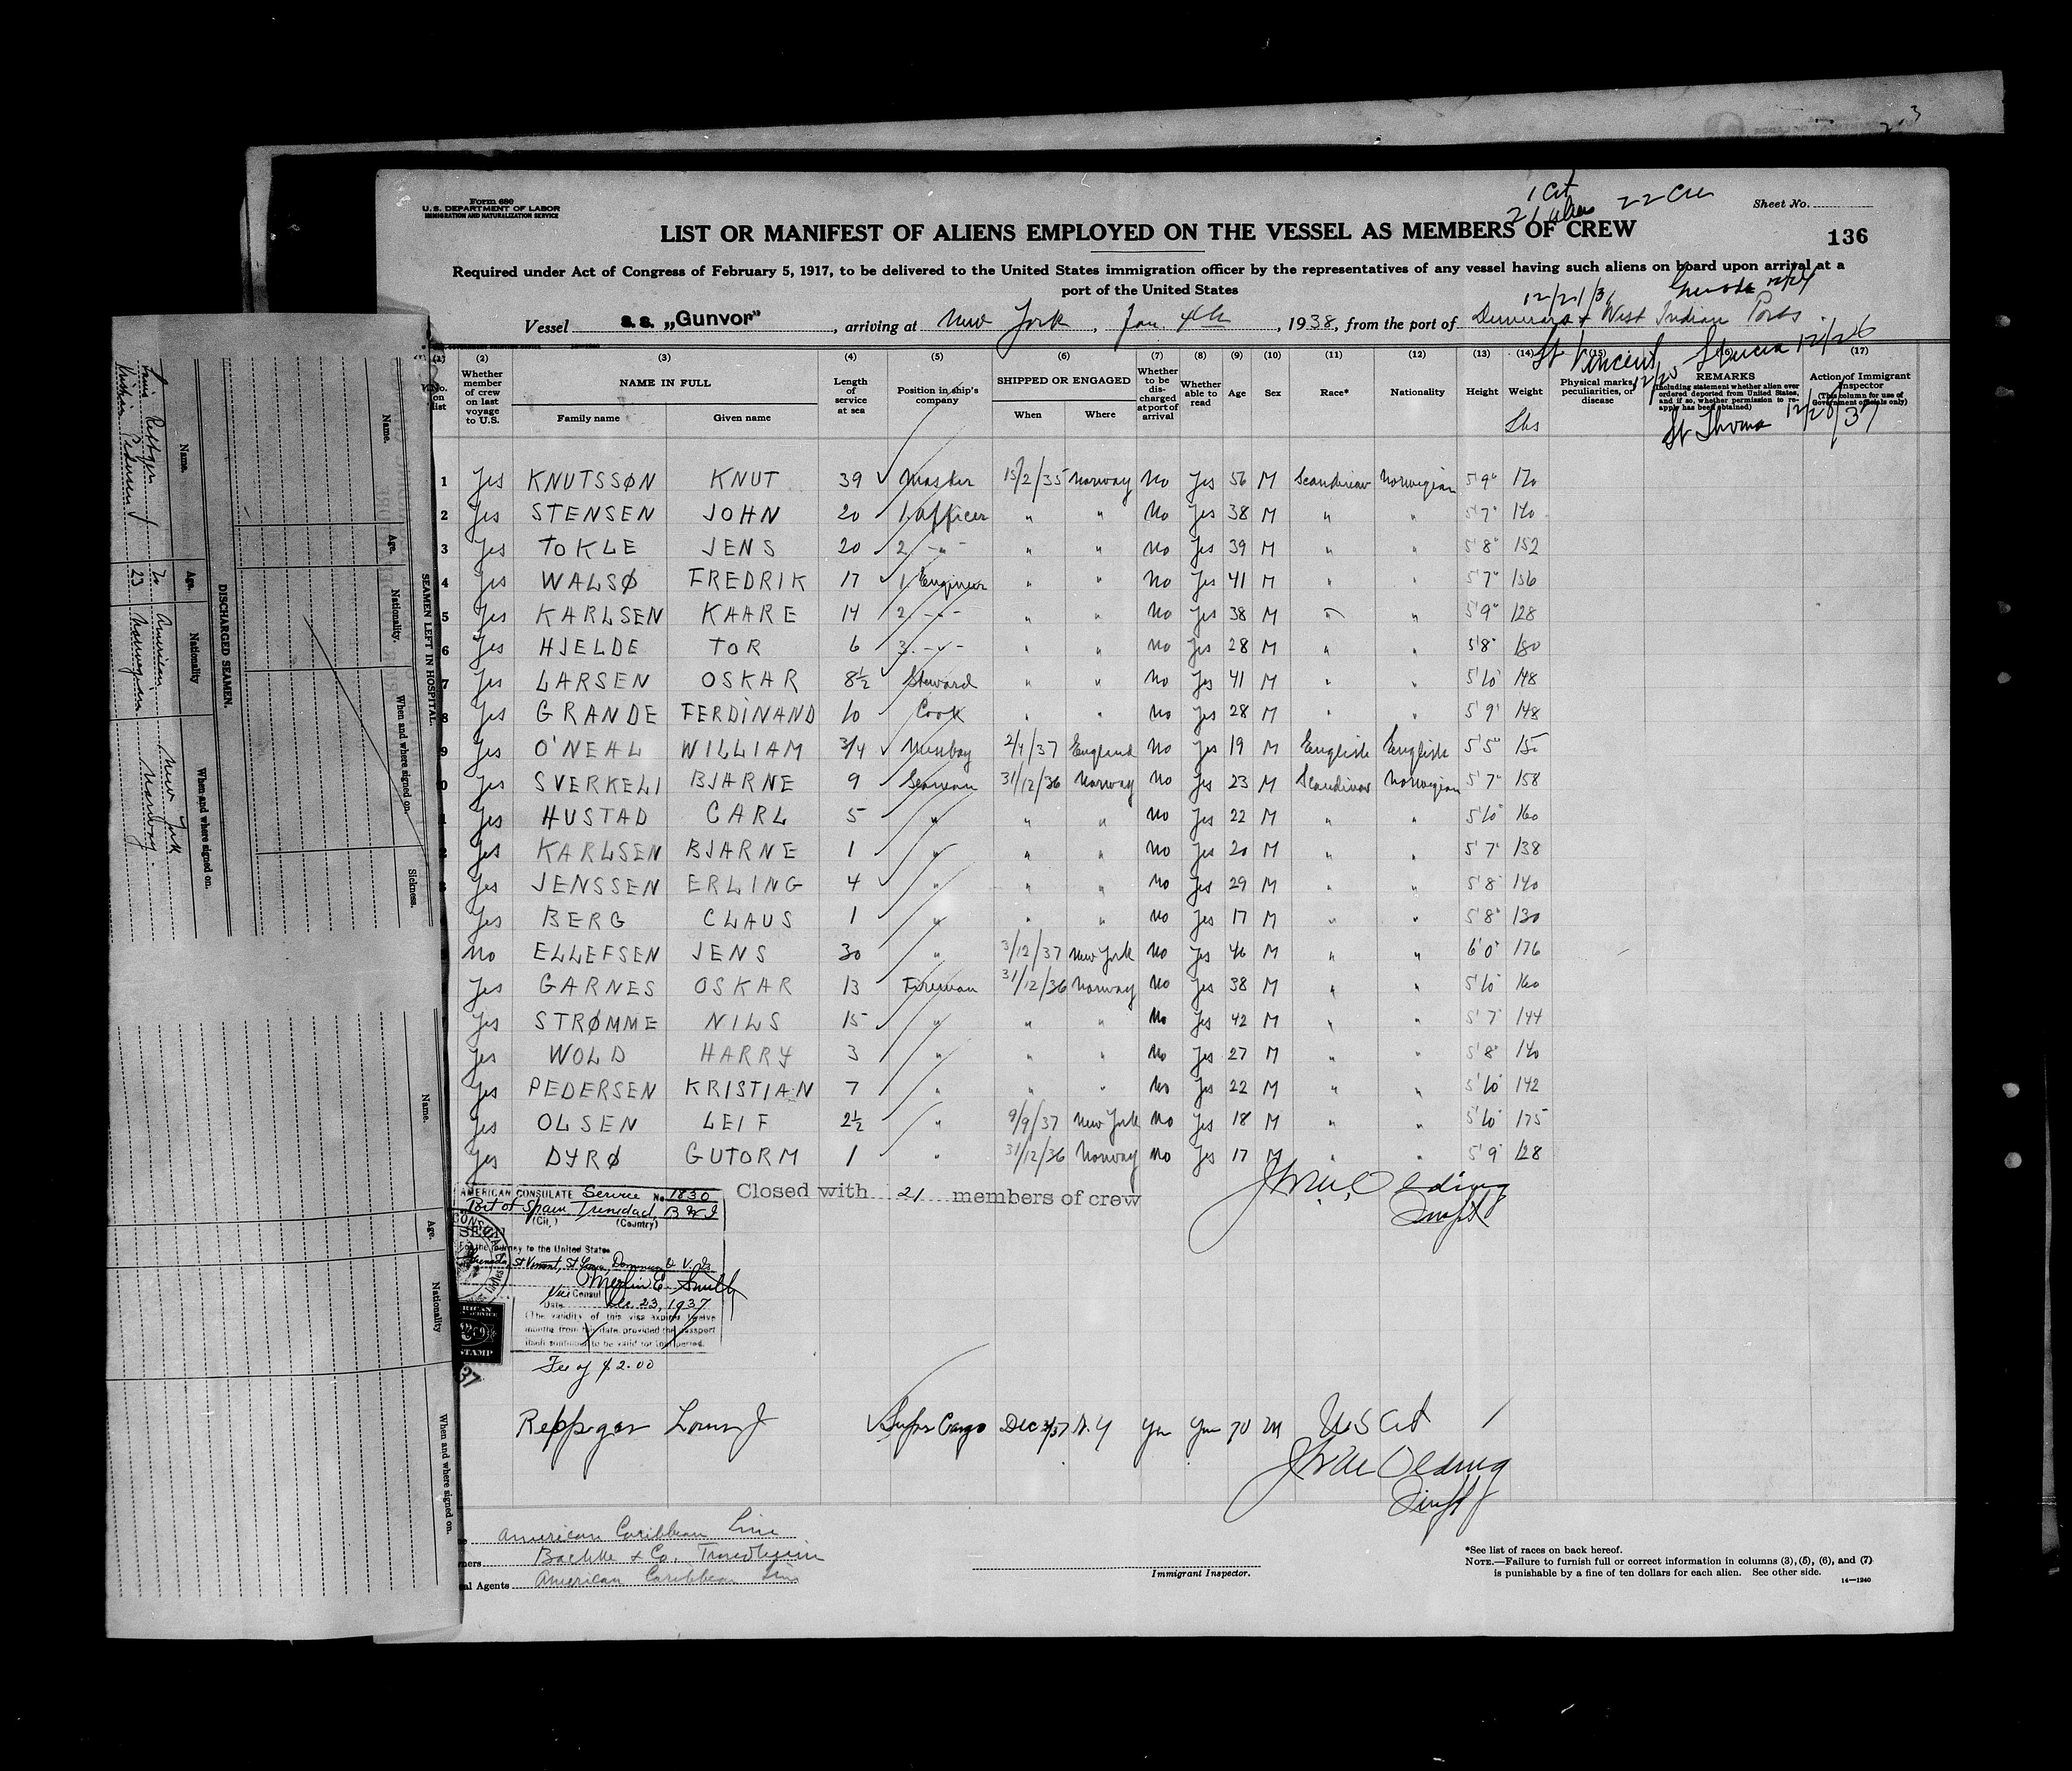 Form 680
U. S. DEPARTMENT OF LABOR
IMMIGRATION AND NATURALIZATION SERVICE
1 Cit
21 aliens
22 Cre
Sheet No.
LIST OR MANIFEST OF ALIENS EMPLOYED ON THE VESSEL AS MEMBERS OF CREW
136
Required under Act of Congress of February 5, 1917, to be delivered to the United States immigration officer by the representatives of any vessel having such aliens on board upon arrival at a
port of the United States
12/21/3 Grenada 12/24
Vessel s. s. „Gunvor“, arriving at New York, Jan. 4th, 1938, from the port of Demerara + West Indian Ports
St Vincent 12/25 St Lucia 12/26
St Thomas 12/28/37
(1) (2) (3) (4) (5) (6) (7) (8) (9) (10) (11) (12) (13) (14) (15) (17)
No. on list
Whether member of crew on last voyage to U.S.
NAME IN FULL
Family name Given name
Length of service at sea
Position in ship's company
SHIPPED OR ENGAGED
When Where
Whether to be discharged at port of arrival
Whether able to read
Age
Sex
Race*
Nationality
Height
Weight
Lbs
Physical marks, peculiarities, or disease
REMARKS
(Including statement whether alien ever ordered deported from United States, and if so, whether permission to reapply has been obtained)
Action of Immigrant Inspector
(This column for use of Government officials only)
1 Yes KNUTSSØN KNUT 39 Master 15/2/35 Norway No Yes 56 M Scandinav Norwegian 5'9" 170
2 Yes STENSEN JOHN 20 1. Officer " " No Yes 38 M " " 5'7" 140
3 Yes TOKLE JENS 20 2. -"- " " No Yes 39 M " " 5'8" 152
4 Yes WALSØ FREDRIK 17 1. Engineer " " No Yes 41 M " " 5'7" 156
5 Yes KARLSEN KAARE 14 2. -"- " " No Yes 38 M " " 5'9" 128
6 Yes HJELDE TOR 6 3. -"- " " No Yes 28 M " " 5'8" 180
7 Yes LARSEN OSKAR 8½ Steward " " No Yes 41 M " " 5'10" 148
8 Yes GRANDE FERDINAND 10 Cook " " No Yes 28 M " " 5'9" 148
9 Yes O'NEAL WILLIAM 3/4 Messboy 2/4/37 England No Yes 19 M English English 5'5" 15
0 Yes SVERKELI BJARNE 9 Seaman 31/12/36 Norway No Yes 23 M Scandinav Norwegian 5'7" 158
1 Yes HUSTAD CARL 5 " " " No Yes 22 M " " 5'10" 160
2 Yes KARLSEN BJARNE 1 " " " No Yes 20 M " " 5'7" 138
3 Yes JENSSEN ERLING 4 " " " No Yes 29 M " " 5'8" 140
Yes BERG CLAUS 1 " " " No Yes 17 M " " 5'8" 130
No ELLEFSEN JENS 30 " 3/12/37 New York No Yes 46 M " " 6'0" 176
Yes GARNES OSKAR 13 Fireman 31/12/36 Norway No Yes 38 M " " 5'10" 160
Yes STRØMME NILS 15 " " " No Yes 42 M " " 5'7" 144
Yes WOLD HARRY 3 " " " No Yes 27 M " " 5'8" 140
Yes PEDERSEN KRISTIAN 7 " " " No Yes 22 M " " 5'10" 142
Yes OLSEN LEIF 2½ " 9/9/37 New York No Yes 18 M " " 5'10" 175
Yes DYRØ GUTORM 1 " 31/12/36 Norway No Yes 17 M " " 5'9" 128
AMERICAN CONSULATE Service No 1830
Port of Spain, Trinidad, B.W.I
(City) (Country)
For the journey to the United States
Grenada, St Vincent, St Lucia, Dominica & V. Is
Merlin E. Smith
Vice Consul
Date Dec. 23, 1937
(The validity of this visa expires twelve
months from this date provided the passport
itself continues to be valid for that period.
STAMP
37
Fee of $2.00
Closed with 21 members of crew
Reppger Louis J Super Cargo Dec 3/37 N.Y Yes Yes 70 M US Cit
American Caribbean Line
Bachke & Co. Trondheim
al Agents American Caribbean Line
Immigrant Inspector.
*See list of races on back hereof.
NOTE.—Failure to furnish full or correct information in columns (3), (5), (6), and (7)
is punishable by a fine of ten dollars for each alien. See other side.
14—1240
SEAMEN LEFT IN HOSPITAL.
Name. Age. Nationality. When and where signed on. Sickness.
DISCHARGED SEAMEN.
Name. Age. Nationality When and where signed on.
Louis Reppger 70 American New York
Kristian Pedersen 23 Norwegian Norway
Name. Age. Nationality When and where signed on.